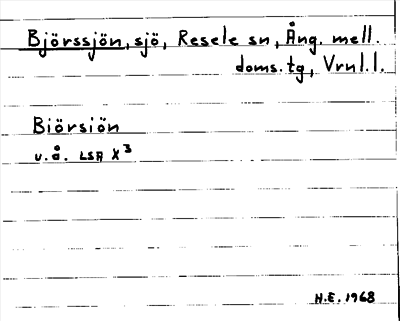 Björssjön, sjö, Resele sn, Ång. mell.
doms.tg, Vrnl.l.
Biörsiön
u.å. LSA X³
H.E. 1968